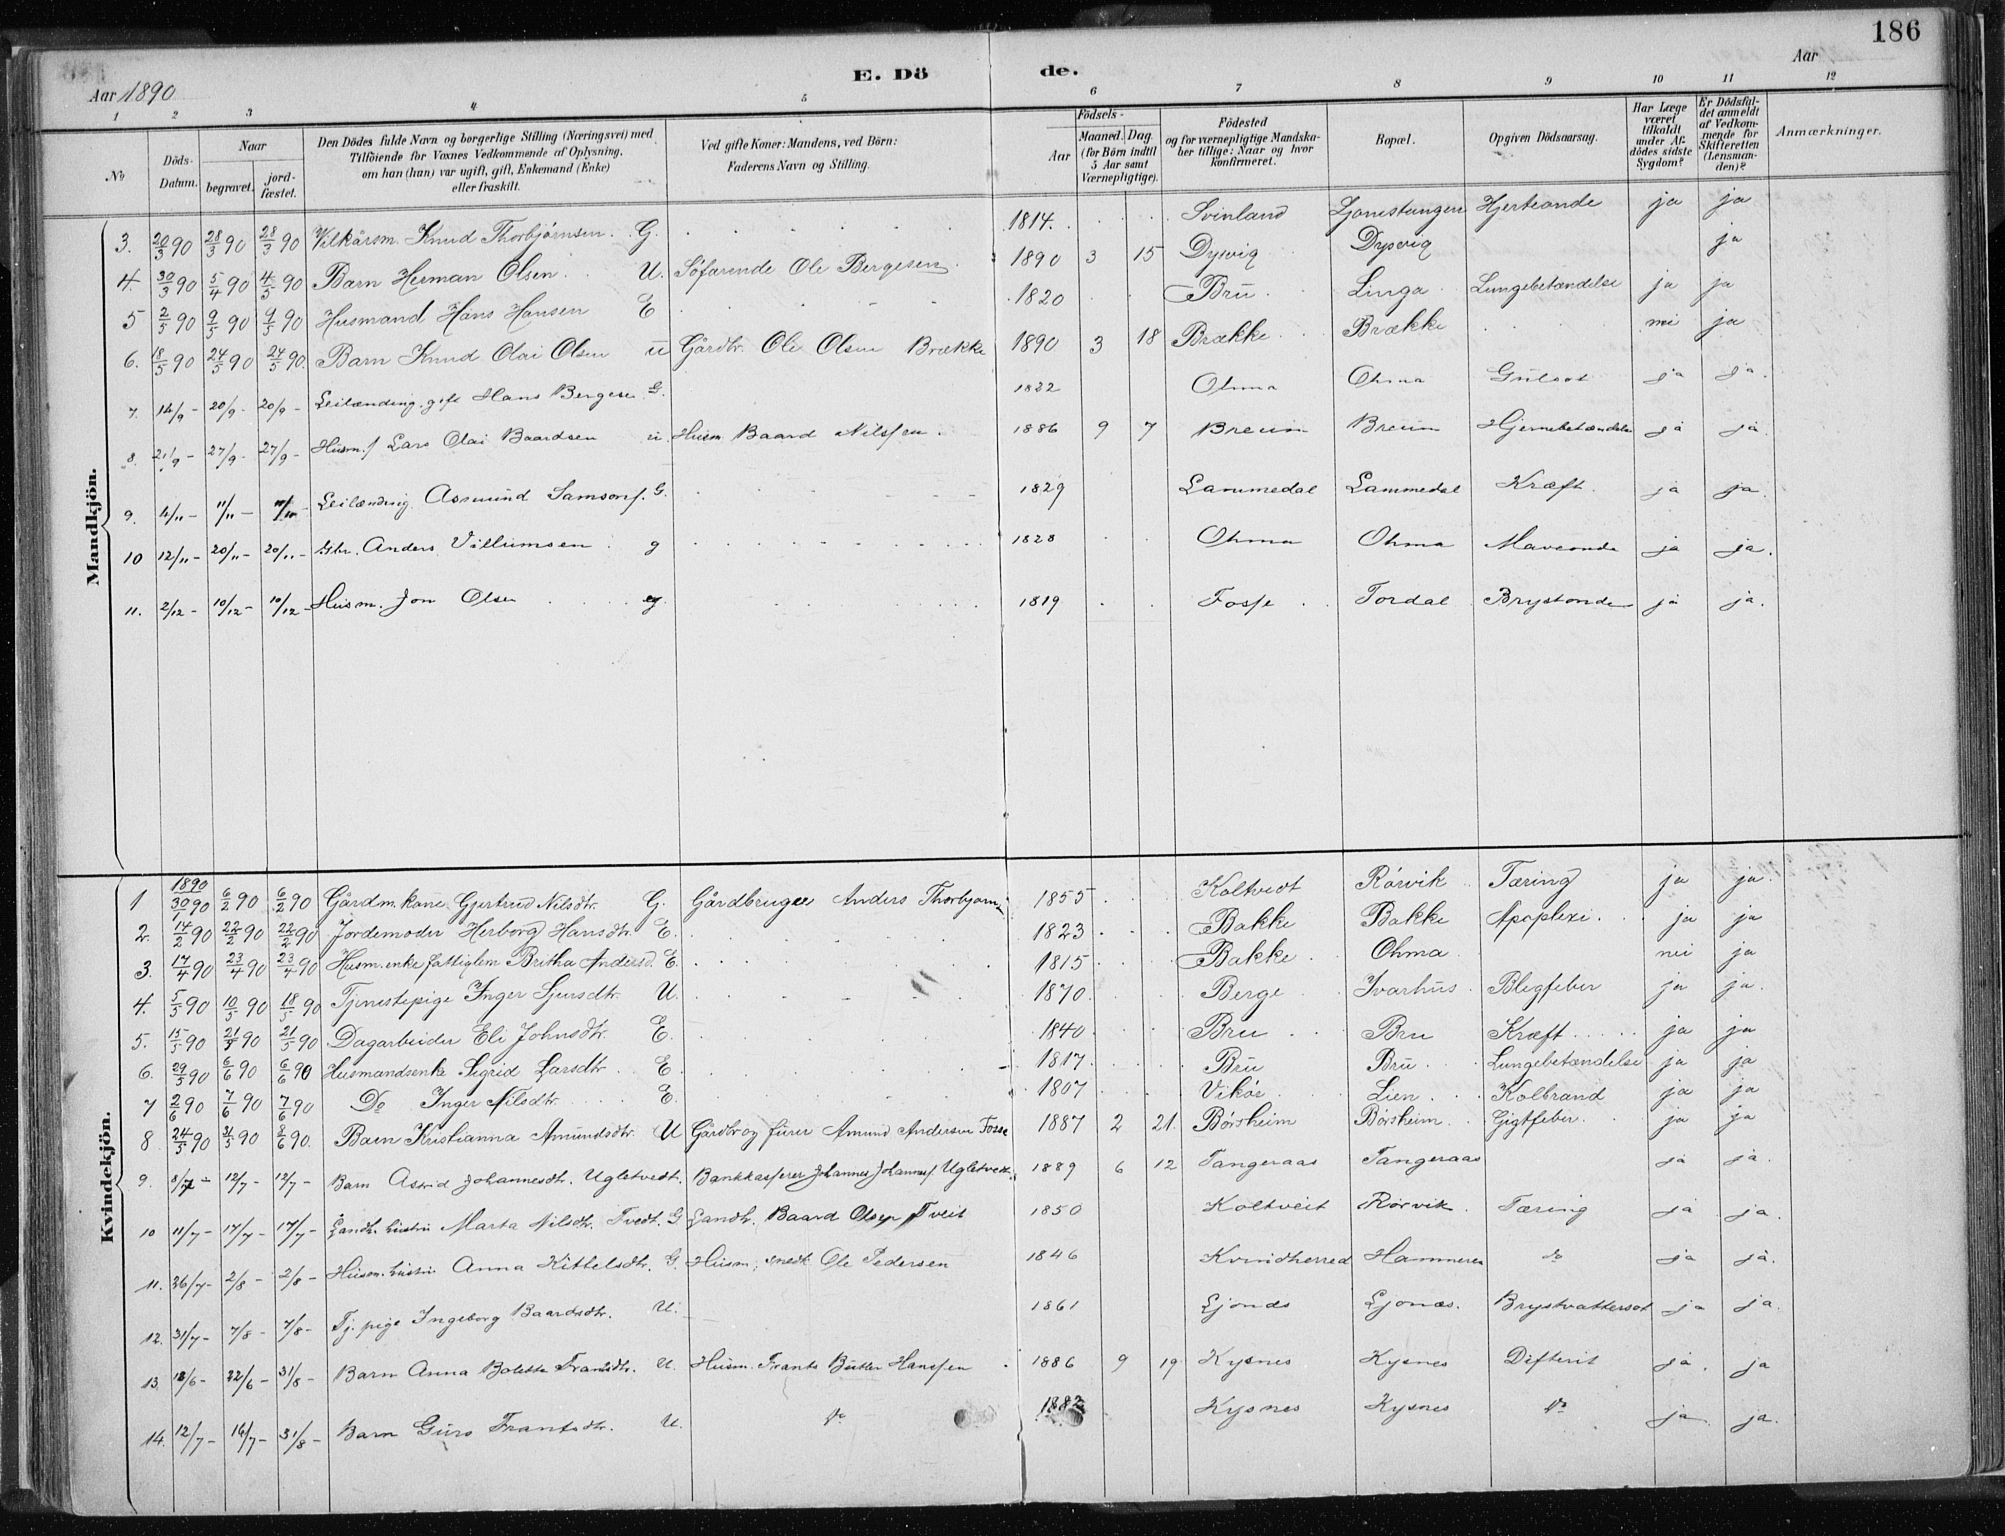 186
E. Dö de.
Aar 1890
Aar
1 2 3 4 5 6 7 8 9 10 11 12
No
Döds-Datum.
Naar
begravet.
jord-fæstet.
Den Dödes fulde Navn og borgerlige Stilling (Næringsvei) med
Tilföiende for Voxnes Vedkommende af Oplysning,
om han (hun) var ugift, gift, Enkemand (Enke)
eller fraskilt.
Ved gifte Koner: Mandens, ved Börn:
Faderens Navn og Stilling.
Födsels-
Aar
Maaned. Dag.
(for Börn indtil
5 Aar samt
Værnepligtige).
Födested
og for værnepligtige Mandska-
ber tillige: Naar og hvor
konfirmeret.
Bopæl.
Opgiven Dödsaarsag.
Har Læge
været
tilkaldt
under Af-
dödes sidste
Sygdom?
Er Dödsfal-
det anmeldt
af Vedkom-
mende for
Skifteretten
(Lensman-
den)?
Anmærkninger.
Mandkjön.
3. 20/3 90 28/3 90 28/3 90 Vilkårsm. Knud Thorbjørnsen. G. 1814. Svinland Ljonestangen Hjerteonde ja ja
4. 30/3 90 5/4 90 4/5 90 Barn Herman Olsen. U. Söfarende Ole Bergesen. 1890 3 15 Dysvig Dysvig ja
5 2/5 90 9/5 90 9/5 90 Husmand Hans Hansen E 1820 Bru Linga Lungebetændelse ja ja
6. 18/5 90 24/5 90 24/5 90. Barn Knud Olai Olsen u Gårdbr. Ole Olsen Brække 1890 3 18 Brække Brække nei ja
7. 14/9 - 20/9 - 20/9 - Leilænding. gift Hans Bergesen G. 1822 Ohma Ohma Gulsot ja ja.
8. 21/9 - 27/9 - 27/9 - Husm./ Lars Olai Baardsen u. Husm. Baard Nilssen. 1886 9 7 Breum Breum Hjernebetændelse ja ja.
9. 4/11 - 11/11 - Leilænding Asmund Samsons. G. 1829 Lammedal Lammedal Kræft. ja ja.
10 12/11 - 20/11 - 20/11 - Gbr. Anders Villumsen. g 1828 Ohma Ohma Maveonde ja ja.
11. 2/12 - 10/12 - 10/12 - Husm. Jon Olsen g. 1819 Fosse Tordal Brystonde ja ja.
Kvindekjön.
1 1890 30/1 90 6/2 90 6/2 90 Gårdm. kone Gjertrud Nilsdtr. G. Gårdbruger Anders Thorbjørns. 1855 Koltvedt Rörvik Tæring ja ja.
2. 14/2 90 22/2 90 22/2 90 Jordemoder Herborg Hansdtr. E. 1823 Bakke Bakke Apoplexi. ja ja
3. 17/4 90 23/4 90 23/4 90 Husm.enke fattiglem Britha Andersd. E. 1815 Bakke Ohma nei ja
4. 5/5 90 10/5 90 18/5 90 Tjenestepige Inger Sjursdtr. U. 1870 Berge Ivarhus. Blegfeber ja ja.
5. 15/5 90 21/5 90 21/5 90 Dagarbeider Eli Johnsdtr. E. 1840 Bru Bru Kræft. ja ja
6. 29/5 90 6/6 90 6/6 90 Husmandsenke Sigrid Larsdtr. E. 1817. Bru Bru. Lungebetændelse ja ja
7 2/6 90 7/6 90 7/6 90 Do Inger Nilsdtr. E. 1807 Vikör Lien. Kolbrand ja ja
8 24/5 90 31/5 90 8/6 90. Barn Kristianna Amundsdtr. U Gårdbr. og furer Amund Andersen Fosse 1887 2 21. Börsheim Börsheim. Gigtfeber. ja ja
9. 8/7 - 12/7 - 12/7 - Barn Astrid Johannesdtr. Ugletvedt. Bankkasserer Johannes Johanness. Ugletvedt. 1889 6 12 Tangeraas Tangeraas ja ja.
10 11/7 - 17/7 - 17/7 - Landh. hustru Marta Nilsdtr. Tvedt. G Landh. Baard Olsen Tveit 1850 Koltveit Rörvik. Tæring ja ja.
11. 26/7 - 2/8 - 2/8 - Husm. hustru Anna Kittelsdtr. G. Husm., smed Ole Pedersen 1846 Kvindherred Hammeren do ja ja.
12. 31/7 - 7/8 - 7/8 - Tj. pige Ingeborg Baardsdtr. U. 1861 Ljonæs Ljonæs. Brystvattersot ja ja.
13. 18/6 - 22/6 - 31/8 - Barn Anna Bolette Frantsdtr. U. Husm. Frants Butler Hanssen 1886 9 19 Kysnes Kysnes Difterit ja. ja
14. 12/7 - 16/7 - 31/8 - Barn Guro Frantsdtr. U. do 1882 Kysnes Kysnes do ja ja.